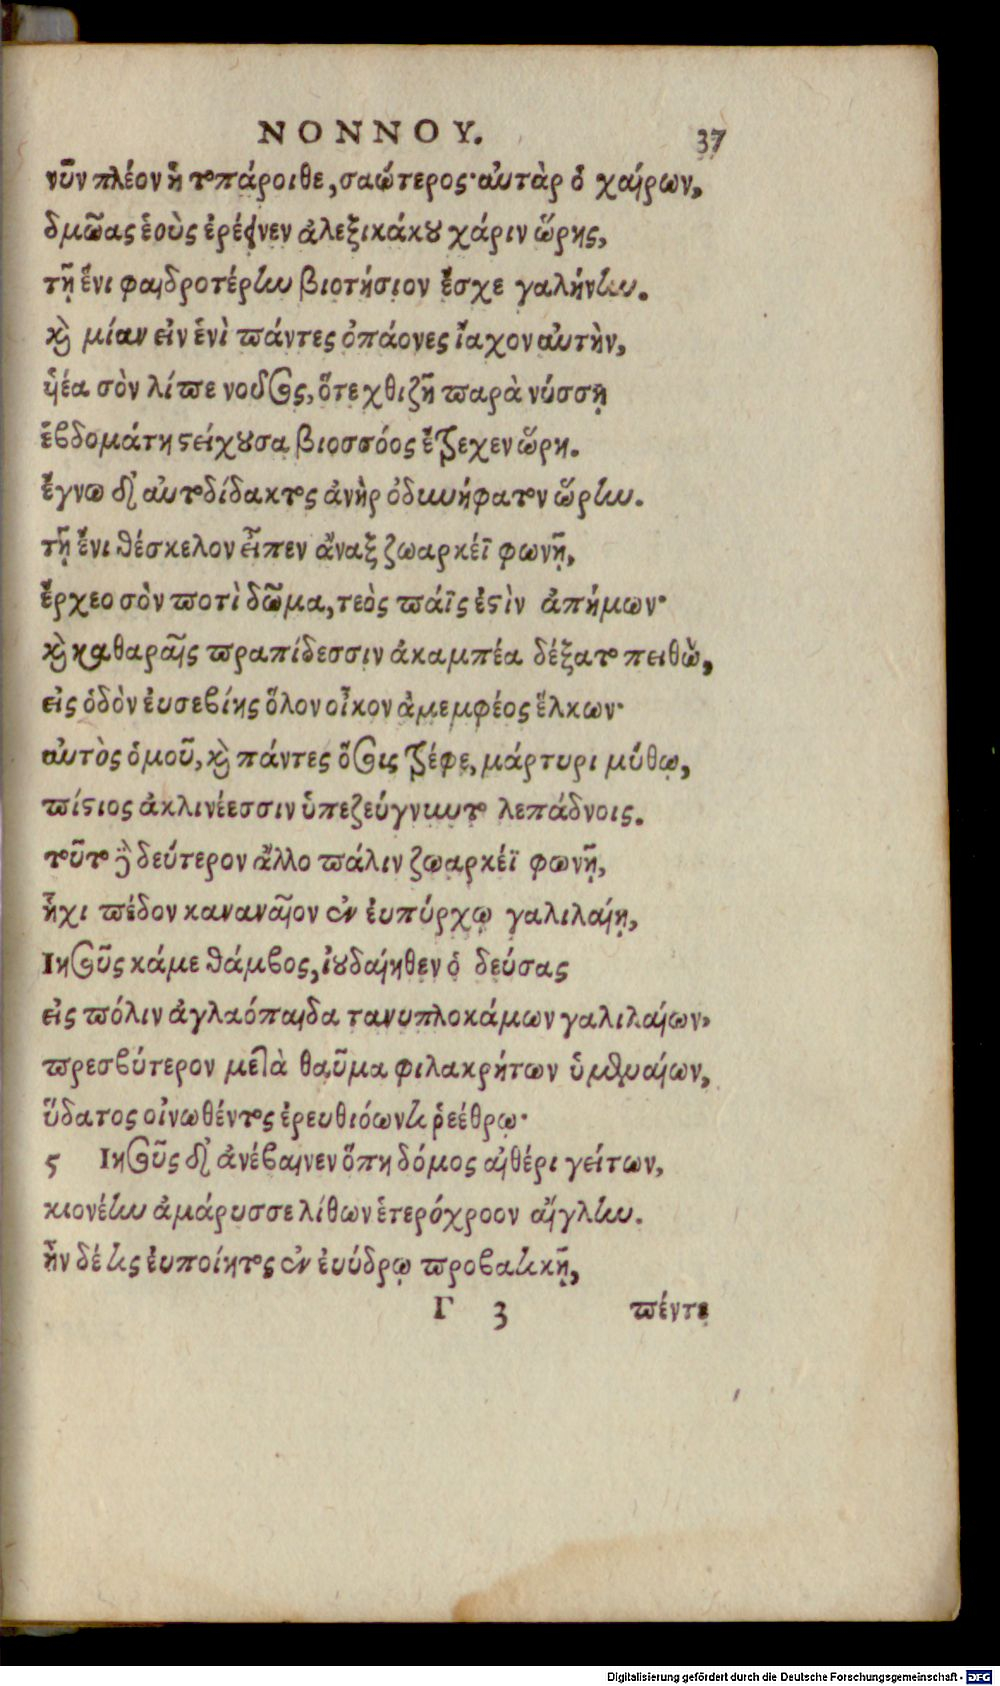 ΝΟΝΝΟΥ. 37
νῦν πλέον ἢ τοπάροιθε, σαώτερος· αὐτὰρ ὁ χαίρων,
δμῶας ἑοὺς ἐρέεινεν ἀλεξικάκου χάριν ὥρης,
τῇ ἔνι φαιδροτέρην βιοτήσιον ἔσχε γαλήνην.
καὶ μίαν εἰν ἑνὶ πάντες ὀπάονες ἴαχον αὐτὴν,
ἠέα σὸν λίπε νοῦσος, ὅτε χθιζῇ παρὰ νύσσῃ
ἑβδομάτη στείχουσα βιοσσόος ἔτρεχεν ὥρη.
ἔγνω δ' αὐτοδίδακτος ἀνὴρ ὀδυνήφατον ὥρην.
τῇ ἔνι θέσκελον εἶπεν ἄναξ ζωαρκέϊ φωνῇ,
ἔρχεο σὸν ποτὶ δῶμα, τεὸς πάϊς ἐστὶν ἀπήμων·
καὶ καθαραῖς πραπίδεσσιν ἀκαμπέα δέξατο πειθὼ,
εἰς ὁδὸν εὐσεβίης ὅλον οἶκον ἀμεμφέος ἕλκων·
αὐτὸς ὁμοῦ, καὶ πάντες ὅσους τρέφε, μάρτυρι μύθῳ,
πίστιος ἀκλινέεσσιν ὑπεζεύγνυντο λεπάδνοις.
τοῦτο γὰρ δεύτερον ἄλλο πάλιν ζωαρκέϊ φωνῇ,
ἧχι πέδον καναναῖον ἐν εὐπύργῳ γαλιλαίῃ,
Ιησοῦς κάμε θάμβος, ἰουδαίηθεν ὁ δεύσας
εἰς πόλιν ἀγλαόπαιδα τανυπλοκάμων γαλιλαίων,
πρεσβύτερον μετὰ θαῦμα φιλακρήτων ὑμεναίων,
ὕδατος οἰνωθέντος ἐρευθιόωντι ῥεέθρῳ·
5 Ιησοῦς δ' ἀνέβαινεν ὅπη δόμος αἰθέρι γείτων,
κιονέην ἀμάρυσσε λίθων ἑτερόχροον αἴγλην.
ἦν δέ τις εὐποίητος ἐν εὐύδρῳ προβατικῇ,
Γ 3 πέντε
Digitalisierung gefördert durch die Deutsche Forschungsgemeinschaft - DFG